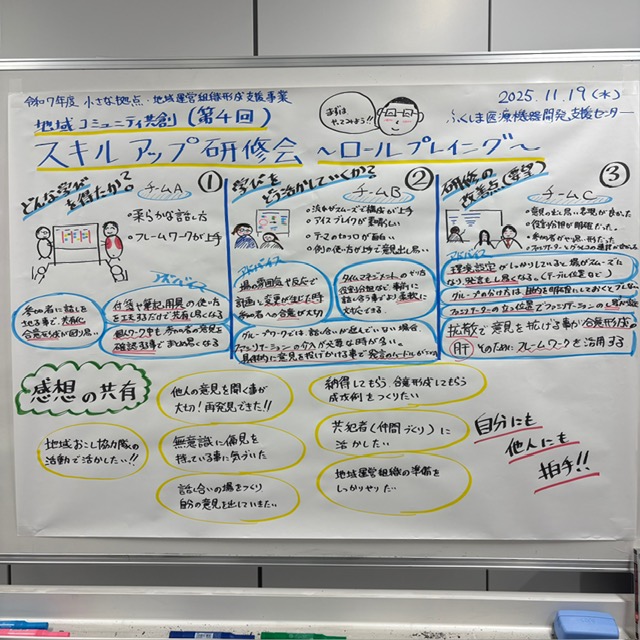 令和7年度 小さな拠点・地域運営組織形成支援事業
地域コミュニティ共創(第4回)
スキルアップ研修会 ～ロールプレイング～
まずは
やってみよう!!
2025.11.19(水)
ふくしま医療機器開発支援センター
どんな学び
を得たか?
①
チームA
・柔らかな話し方
・フレームワークが上手
アドバイス
参加者に話しを
付箋や筆記用具の使い方
を工夫するだけで
個人ワーク中も参加者の意見を
確認する事でまとめ易くなる
学びを
どう活かしていくか?
②
チームB
・流れがスムーズで構成が上手
・アイスブレイクが素晴らしい
・テーマの切り口が面白い
・例の使い方が上手で意見出し易い
アドバイス
場の雰囲気や反応で
計画と変更が生じた時
参加者への合意が大切
タイムマネジメントのやり方
役割分担など事前に
話し合う事でより柔軟に
対応できる
グループワークでは、話し合いが進んでいない場合、
ファシリテーションの介入が必要な時が多い。
具体的に意見を投げかける事で発言のハードルが下がる
研修の
改善点(要望)
③
チームC
・意見の出し易い表現が良かった
・役割分担が明確だった
アドバイス
環境設定がしっかりしていると場がスムーズに
なり発言もし易くなる。(テーブル位置など)
グループの分け方は目的を明確にしておくとブレない
ファシリテーターの立ち位置で
拡散で意見を拡げる事が合意形成の
肝 そのためにフレームワークを活用する
感想の共有
他人の意見を聞く事が
大切!再発見できた!!
納得してもらう合意形成してもらう
成功例をつくりたい
地域おこし協力隊の
活動で活かしたい!!
無意識に偏見を
持っている事に気づいた
共犯者(仲間づくり)に
活かしたい
話し合いの場をつくり
自分の意見を出していきたい
地域運営組織の準備を
しっかりやりたい
自分にも
他人にも
拍手!!